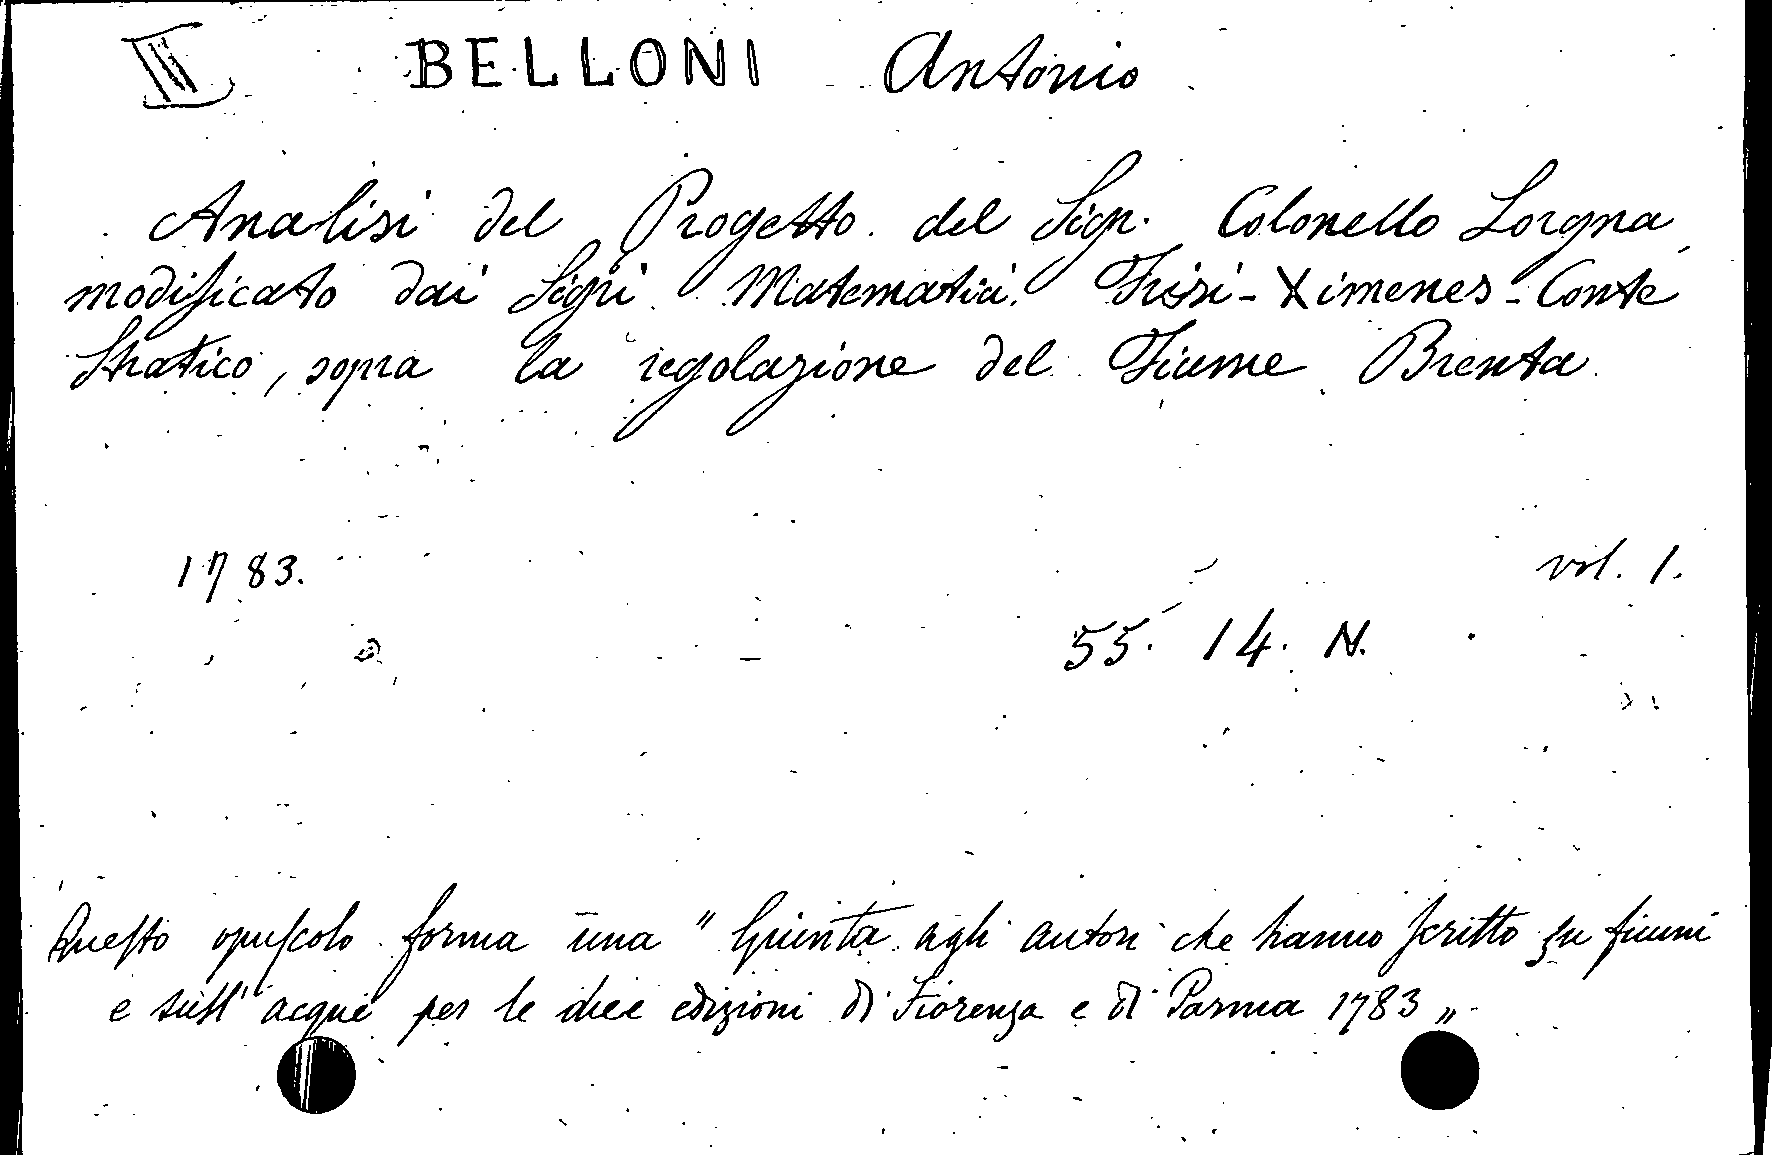 III BELLONI Antonio
Analisi del Progetto del Sigr. Colonello Lorgna
modificato dai Sigri Matematici Frisi-Ximenes-Conte
Stratico, sopra la regolazione del Fiume Brenta
1783. vol. 1.
55. 14. N.
Questo opuscolo forma una " Giunta agli autori che hanno scritto su fiumi
e sull'acque per le due edizioni di Fiorenza e di Parma 1783 „